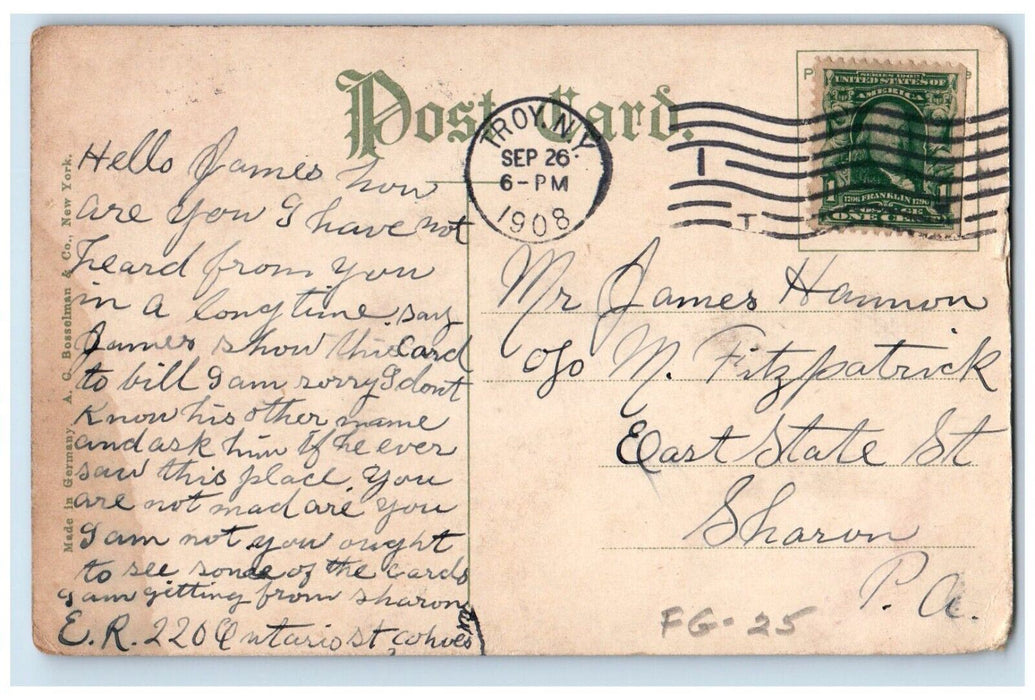 Post Card.
TROY, N.Y.
SEP 26
6-PM
1908
1
T
SERIES 1902
UNITED STATES OF
AMERICA
1706 FRANKLIN 1790
ONE CENT
Made in Germany. A. C. Bosselman & Co., New York.
Hello James how
are you I have not
heard from you
in a long time say
James show this card
to bill I am sorry I dont
know his other name
and ask him If he ever
saw this place. You
are not mad are you
I am not you ought
to see some of the cards
I am getting from sharon
E. R. 220 Ontario st Cohoes
NY
Mr James Hannon
c/o M. Fitzpatrick
East State St
Sharon
P. A.
FG-25